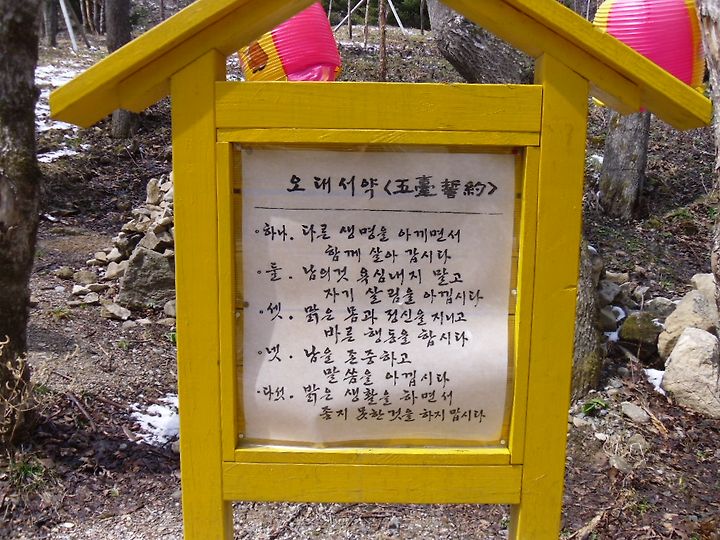 오대서약 <五臺 誓約>
·하나. 다른 생명을 아끼면서
함께 살아 갑시다
·둘. 남의것 욕심내지 말고
자기 살림을 아낍시다
·셋. 맑은 몸과 정신을 지니고
바른 행동을 합시다
·넷. 남을 존중하고
말 씀을 아낍시다
·다섯. 밝은 생활을 하면서
좋지 못한것을 하지 맙시다